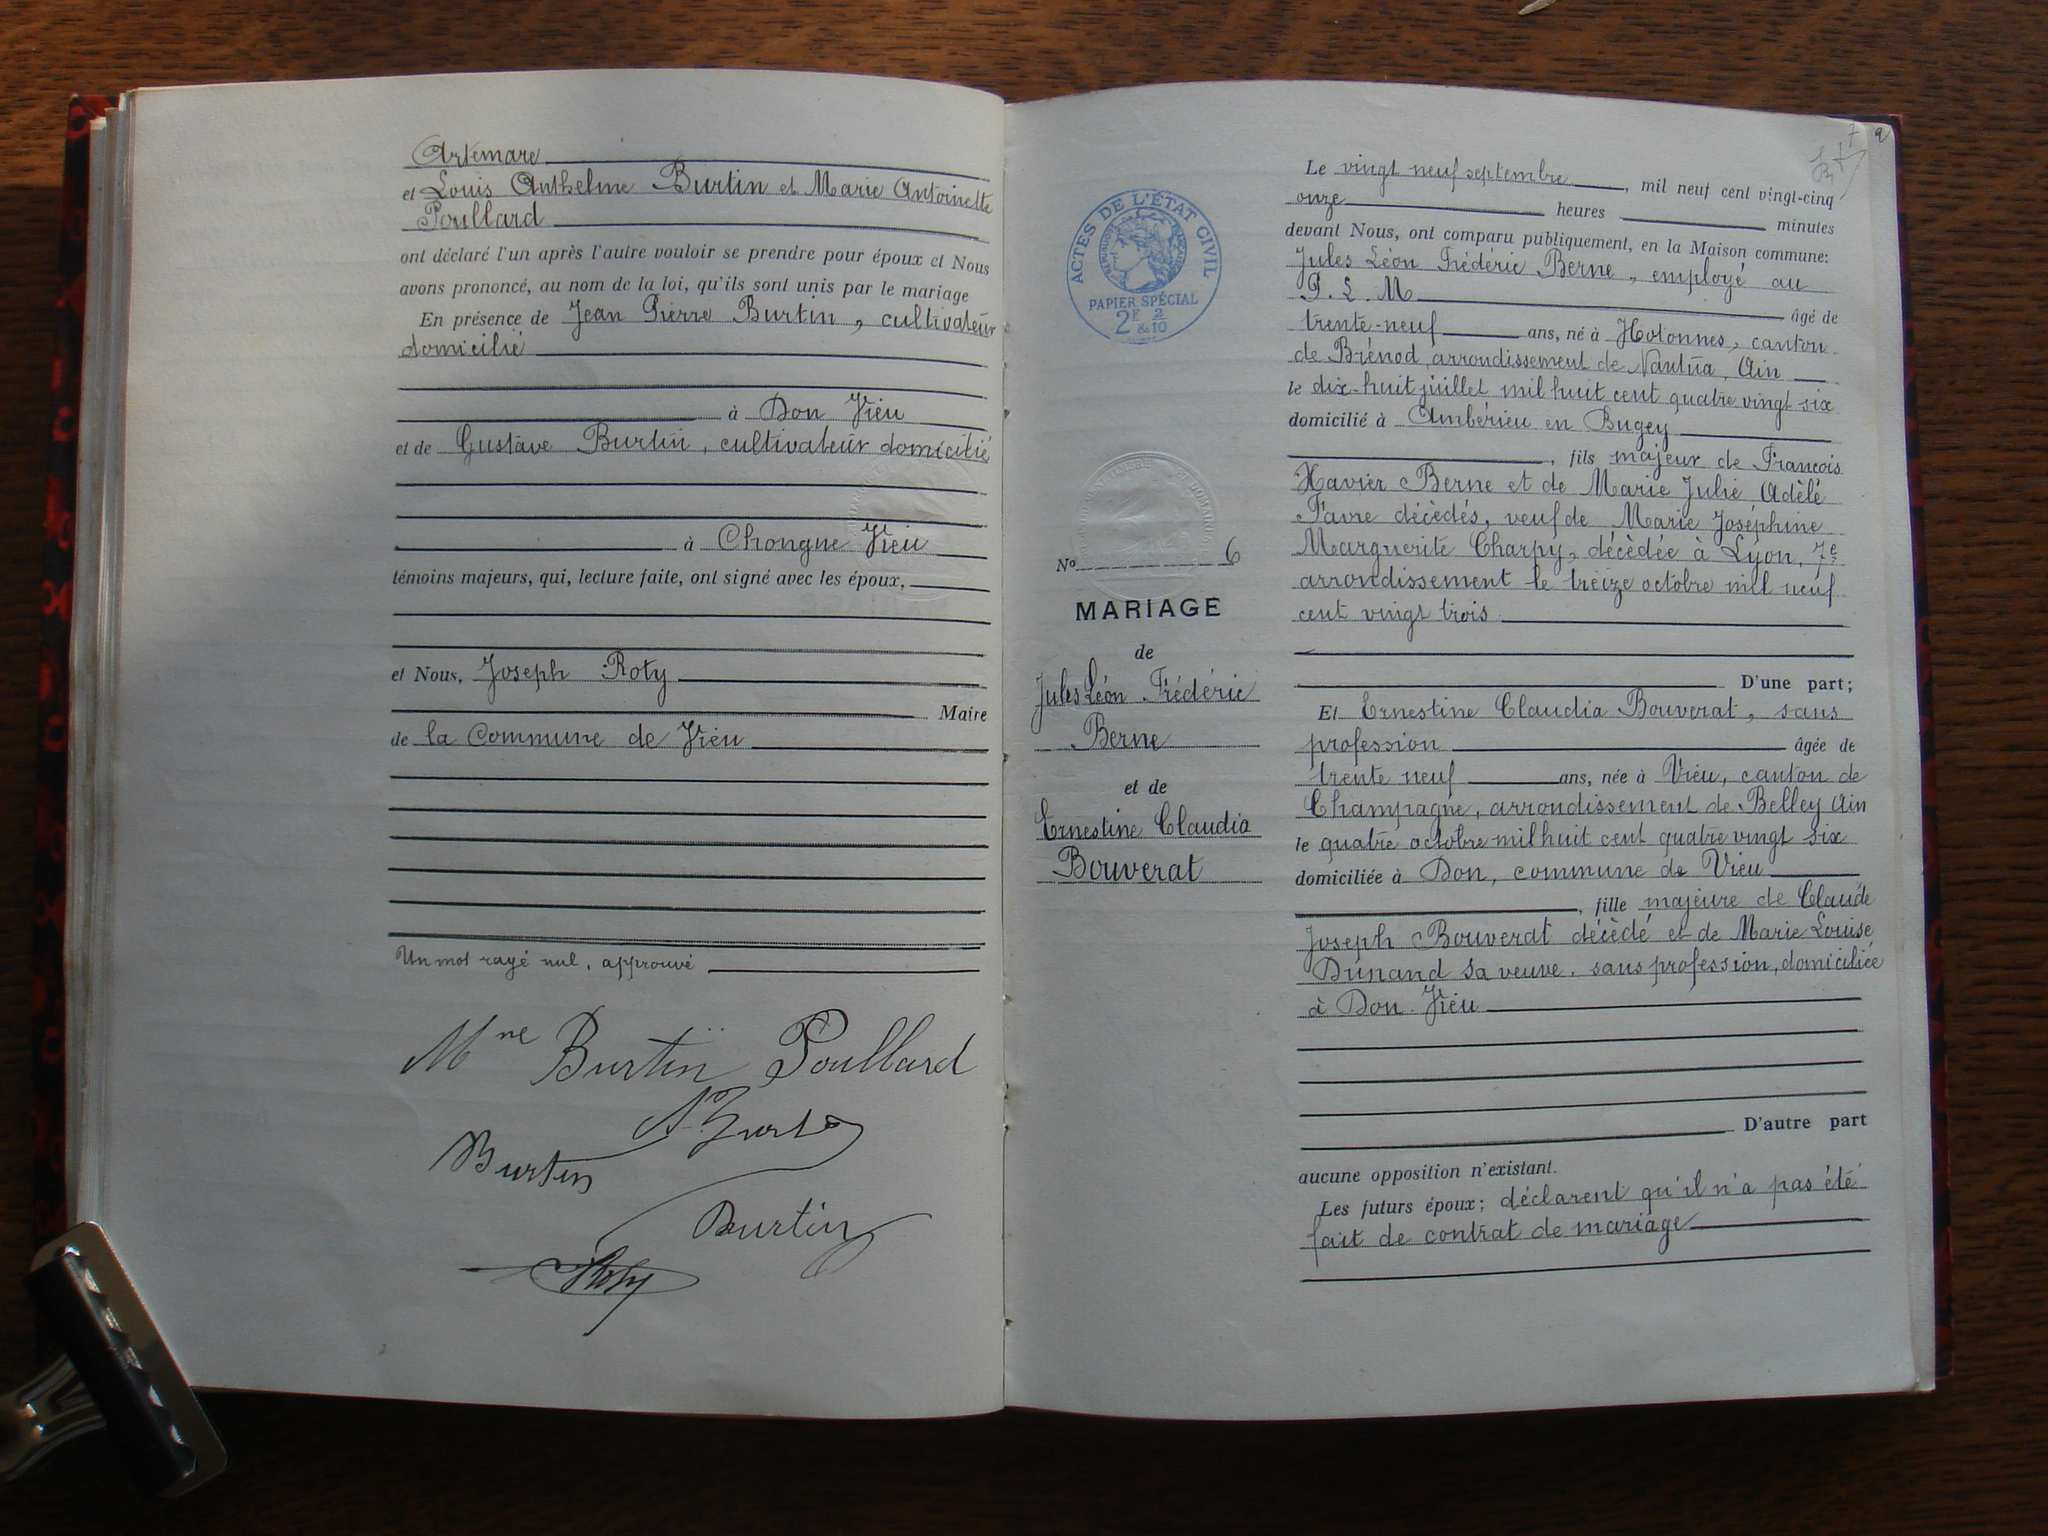 Artemare
et Louis Anthelme Burtin et Marie Antoinette
Poullard
ont déclaré l'un après l'autre vouloir se prendre pour époux et Nous
avons prononcé, au nom de la loi, qu'ils sont unis par le mariage
En présence de Jean Pierre Burtin, cultivateur
domicilié
à Don Vieu
et de Gustave Burtin, cultivateur domicilié
à Chongne Vieu
témoins majeurs, qui, lecture faite, ont signé avec les époux,
et Nous, Joseph Roty
Maire
de la Commune de Vieu
Un mot rayé nul, approuvé
Mne Burtin Poullard
Burtin
Burtin
Roty
ACTES DE L'ÉTAT CIVIL
PAPIER SPÉCIAL
2F & 2/10
No 6
MARIAGE
de
Jules Léon Frédéric
Berne
et de
Ernestine Claudia
Bouverat
7
Le vingt neuf septembre, mil neuf cent vingt-cinq
onze heures minutes
devant Nous, ont comparu publiquement, en la Maison commune:
Jules Léon Frédéric Berne, employé au
P. L. M âgé de
trente-neuf ans, né à Hotonnes, canton
de Brénod, arrondissement de Nantua, Ain
le dix-huit juillet mil huit cent quatre vingt six
domicilié à Ambérieu en Bugey
, fils majeur de François
Xavier Berne et de Marie Julie Adèle
Favre décédés, veuf de Marie Joséphine
Marguerite Charpy, décédée à Lyon, 7e
arrondissement le treize octobre mil neuf
cent vingt trois
D'une part;
Et Ernestine Claudia Bouverat, sans
profession âgée de
trente neuf ans, née à Vieu, canton de
Champagne, arrondissement de Belley Ain
le quatre octobre mil huit cent quatre vingt six
domiciliée à Don, commune de Vieu
, fille majeure de Claude
Joseph Bouverat décédé et de Marie Louise
Dunand sa veuve, sans profession, domiciliée
à Don Vieu
D'autre part
aucune opposition n'existant.
Les futurs époux; déclarent qu'il n'a pas été
fait de contrat de mariage